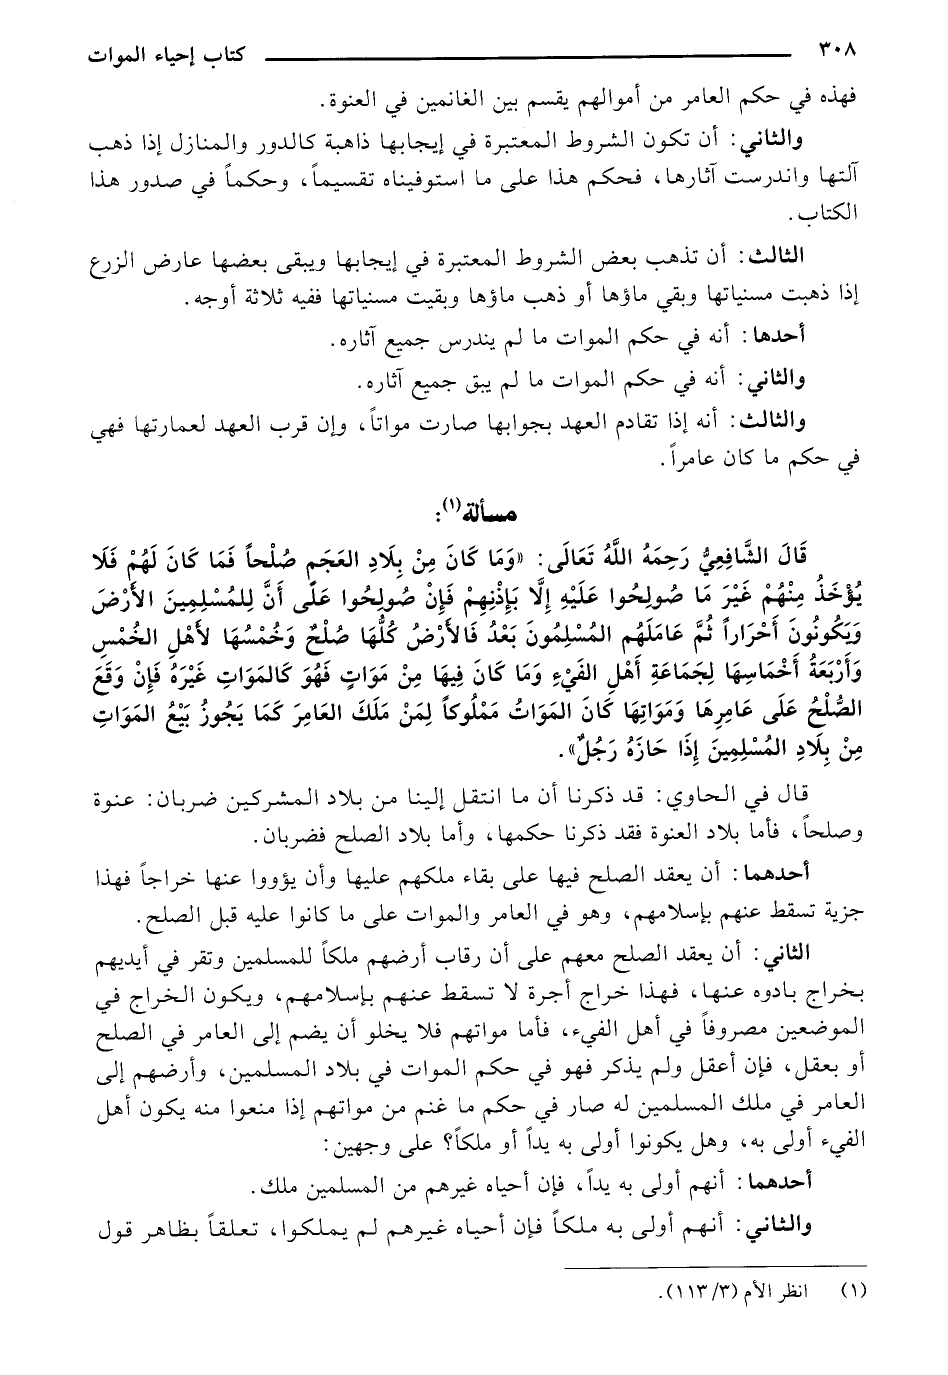 ٣٠٨ كتاب إحياء الموات
فهذه في حكم العامر من أموالهم يقسم بين الغانمين في العنوة.
والثاني: أن تكون الشروط المعتبرة في إيجابها ذاهبة كالدور والمنازل إذا ذهب
آلتها واندرست آثارها، فحكم هذا على ما استوفيناه تقسيماً، وحكماً في صدور هذا
الكتاب.
الثالث: أن تذهب بعض الشروط المعتبرة في إيجابها ويبقى بعضها عارض الزرع
إذا ذهبت مسنياتها وبقي ماؤها أو ذهب ماؤها وبقيت مسنياتها ففيه ثلاثة أوجه.
أحدها: أنه في حكم الموات ما لم يندرس جميع آثاره.
والثاني: أنه في حكم الموات ما لم يبق جميع آثاره.
والثالث: أنه إذا تقادم العهد بجوابها صارت مواتاً، وإن قرب العهد لعمارتها فهي
في حكم ما كان عامراً.
مسألة(١):
قَالَ الشَّافِعِيُّ رَحِمَهُ اللَّهُ تَعَالَى: «وَمَا كَانَ مِنْ بِلَادِ العَجَمِ صُلْحاً فَمَا كَانَ لَهُمْ فَلَا
يُؤْخَذُ مِنْهُمْ غَيْرَ مَا صُولِحُوا عَلَيْهِ إِلَّا بِإِذْنِهِمْ فَإِنْ صُولِحُوا عَلَى أَنَّ لِلمُسْلِمِينَ الأَرْضَ
وَيَكُونُونَ أَحْرَاراً ثُمَّ عَامَلَهُم المُسْلِمُونَ بَعْدُ فَالأَرْضُ كُلُّهَا صُلْحٌ وَخُمْسُهَا لأَهْلِ الخُمْسِ
وَأَرْبَعَةُ أَخْمَاسِهَا لِجَمَاعَةِ أَهْلِ الفَيْءِ وَمَا كَانَ فِيهَا مِنْ مَوَاتٍ فَهُوَ كَالمَوَاتِ غَيْرَهُ فَإِنْ وَقَعَ
الصُّلْحُ عَلَى عَامِرِهَا وَمَوَاتِهَا كَانَ المَوَاتُ مَمْلُوكاً لِمَنْ مَلَكَ العَامِرَ كَمَا يَجُوزُ بَيْعُ المَوَاتِ
مِنْ بِلَادِ المُسْلِمِينَ إِذَا حَازَهُ رَجُلٌ».
قال في الحاوي: قد ذكرنا أن ما انتقل إلينا من بلاد المشركين ضربان: عنوة
وصلحاً، فأما بلاد العنوة فقد ذكرنا حكمها، وأما بلاد الصلح فضربان.
أحدهما: أن يعقد الصلح فيها على بقاء ملكهم عليها وأن يؤووا عنها خراجاً فهذا
جزية تسقط عنهم بإسلامهم، وهو في العامر والموات على ما كانوا عليه قبل الصلح.
الثاني: أن يعقد الصلح معهم على أن رقاب أرضهم ملكاً للمسلمين وتقر في أيديهم
بخراج بادوه عنها، فهذا خراج أجرة لا تسقط عنهم بإسلامهم، ويكون الخراج في
الموضعين مصروفاً في أهل الفيء، فأما مواتهم فلا يخلو أن يضم إلى العامر في الصلح
أو بعقل، فإن أعقل ولم يذكر فهو في حكم الموات في بلاد المسلمين، وأرضهم إلى
العامر في ملك المسلمين له صار في حكم ما غنم من مواتهم إذا منعوا منه يكون أهل
الفيء أولى به، وهل يكونوا أولى به يداً أو ملكاً؟ على وجهين:
أحدهما: أنهم أولى به يداً، فإن أحياه غيرهم من المسلمين ملك.
والثاني: أنهم أولى به ملكاً فإن أحياه غيرهم لم يملكوا، تعلقاً بظاهر قول
(١) انظر الأم (٣/ ١١٣).